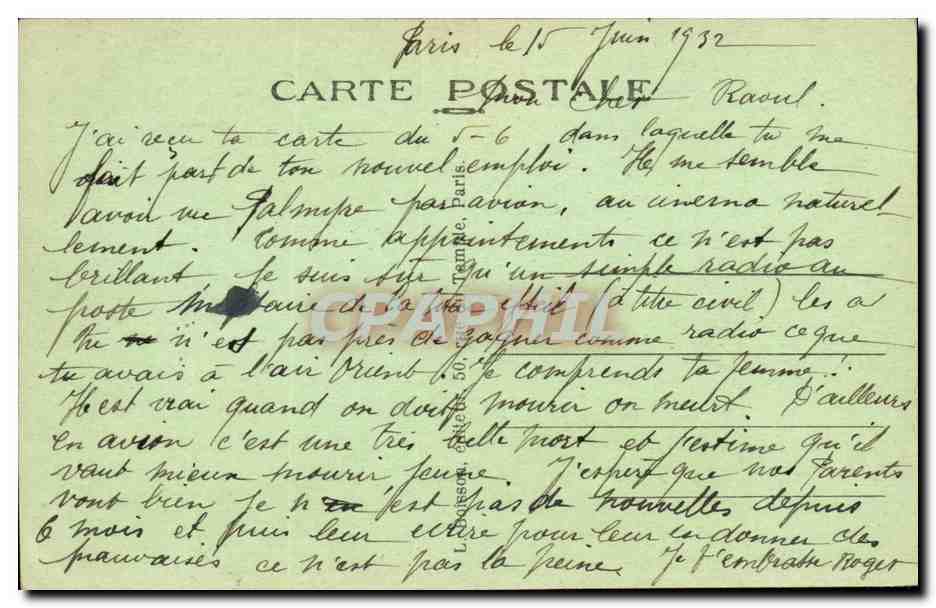 Paris le 15 Juin 1932
CARTE POSTALE
Mon Cher Raoul.
J'ai reçu ta carte du 5-6 dans laquelle tu me
fait part de ton nouvel emploi. Il me semble
avoir vu Palmyre par avion, au cinema naturel-
lement. Comme appointements ce n'est pas
brillant je suis sûr qu'un simple radio au
poste de la Tour Eiffel (à titre civil) les a
tu n'est pas près de gagner comme radio ce que
tu avais à l'air Orient. Je comprends ta femme!
Il est vrai quand on doit mourir on meurt. D'ailleurs
en avion c'est une très belle mort et j'estime qu'il
vaut mieux mourir jeune J'espère que nos Parents
vont bien je n'est pas de nouvelles depuis
6 mois et puis leur ecrire pour leur en donner des
mauvaises ce n'est pas la peine. Je t'embrasse Roger
L. Boisson, éditeur, 50, du Temple, Paris.
CPAPHIL